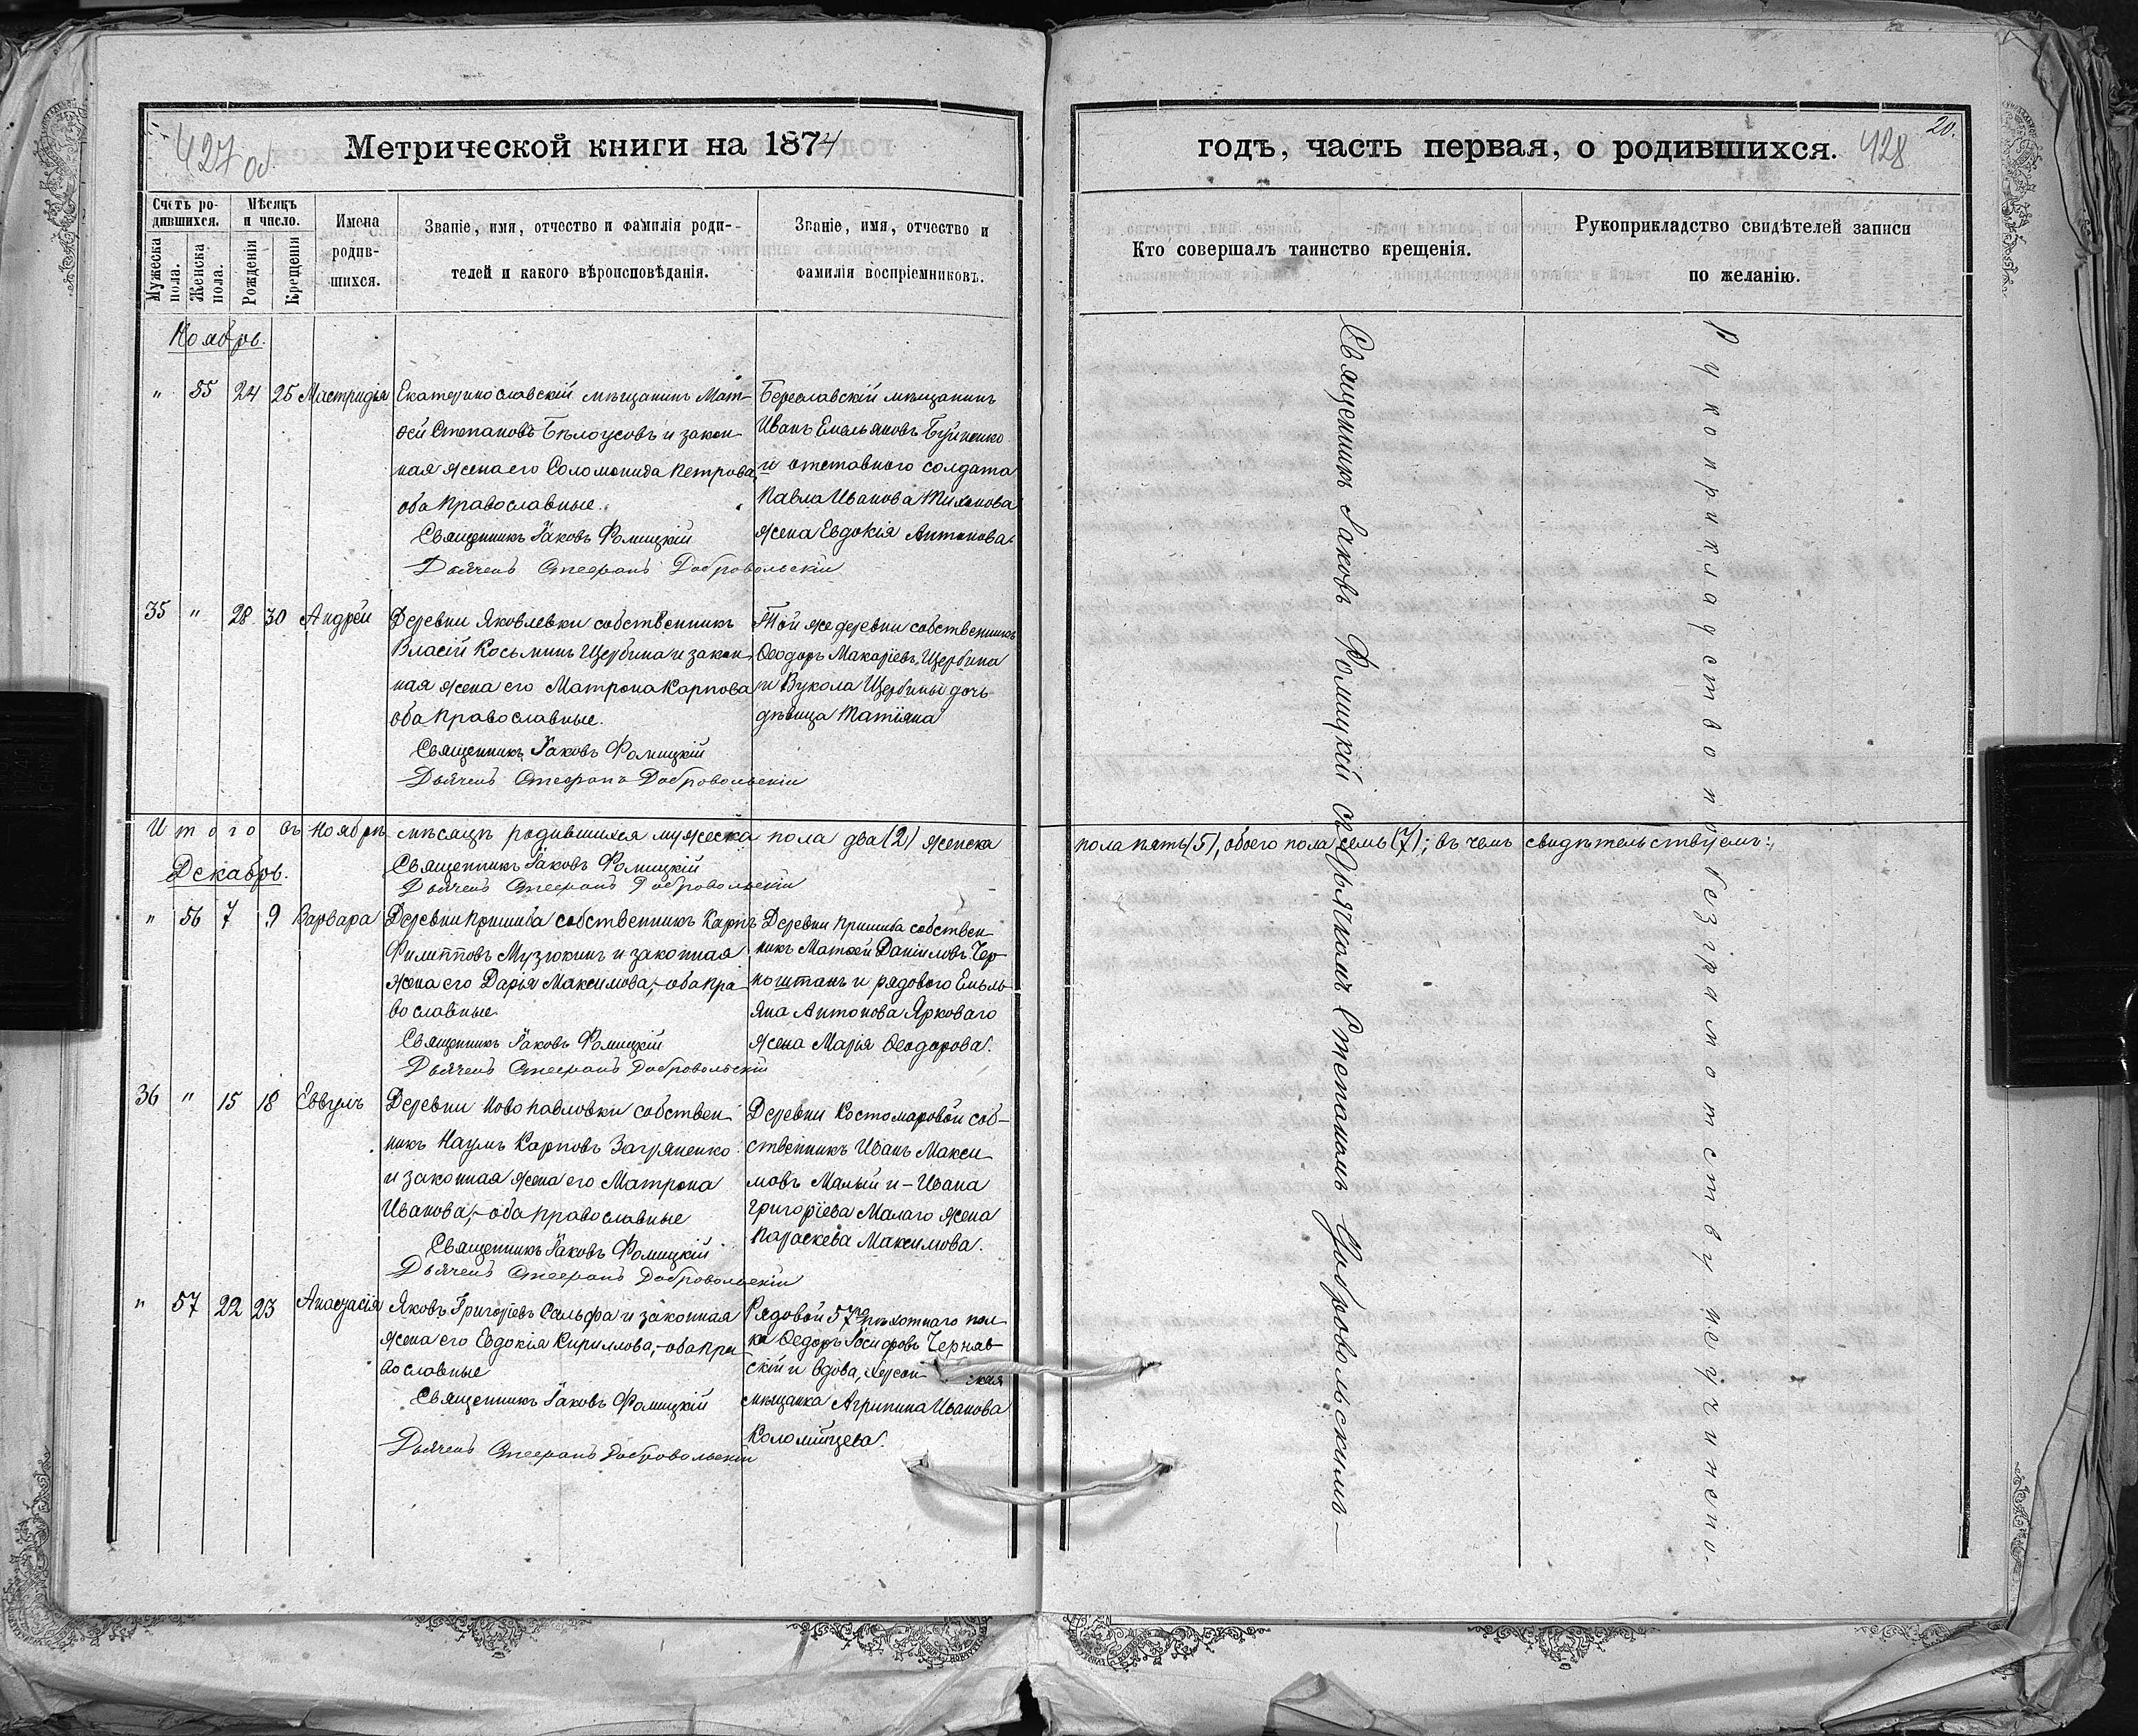 427 об.
Метрической книги на 1874
Счетъ ро-
дившихся.
Мѣсяцъ
и число.
Мужеска
пола.
Женска
пола.
Рожденія
Крещенія
Имена
родив-
шихся.
Званіе, имя, отчество и фамилія роди-
телей и какого вѣроисповѣданія.
Званіе, имя, отчество и
фамилія воспріемниковъ.
Ноябрь.
" 55 24 25 Мастридія
Екатеринославскій мѣщанинъ Мат-
ѳей Степановъ Бѣлоусовъ и закон-
ная жена его Соломонида Петрова,
оба православные.
Священникъ Іаковъ Фомицкій
Дьячекъ Стефанъ Добровольскій
Береславскій мѣщанинъ
Иванъ Емельяновъ
и отставного солдата
Павла Иванова Тихонова
жена Евдокія Антонова.
35 " 28 30 Андрей
Деревни Яковлевки собственникъ
Власій Косьминъ Щербина и закон-
ная жена его Матрона Карпова
оба православные.
Священникъ Іаковъ Фомицкій
Дьячекъ Стефанъ Добровольскій
Той же деревни собственникъ
Ѳеодоръ Макаріевъ Щербина
и Вукола Щербины дочь
дѣвица Татіана
Итого въ ноябрѣ мѣсяцѣ родившихся мужеска пола два (2) женска
Священникъ Іаковъ Фомицкій
Дьячекъ Стефанъ Добровольскій
Декабрь.
" 56 7 9 Варвара
Деревни Пришиба собственникъ Карпъ
Филипповъ Музюкинъ и законная
жена его Дарія Максимова,- оба пра-
вославные
Священникъ Іаковъ Фомицкій
Дьячекъ Стефанъ Добровольскій
Деревни Пришиба собствен-
никъ Матѳей Даніиловъ Чер-
ноштанъ и рядового Емель-
яна Антонова Яркового
жена Марія Ѳеодорова.
36 " 15 18 Еввулъ
Деревни Новопавловки собствен-
никъ Наумъ Карповъ Загряненко
и законная жена его Матрона
Иванова,- оба православные
Священникъ Іаковъ Фомицкій
Дьячекъ Стефанъ Добровольскій
Деревни Костомаровой соб-
ственникъ Иванъ Макси-
мовъ Малый и - Ивана
Григоріева Малаго жена
Параскева Максимова.
" 57 22 23 Анастасія
Яковъ Григоріевъ Сальфа и законная
жена его Евдокія Кириллова,- оба пра-
вославные
Священникъ Іаковъ Фомицкій
Дьячекъ Стефанъ Добровольскій
Рядовой 57го пѣхотнаго пол-
ка Ѳедоръ Іосифовъ Чернав-
скій и вдова, Херсон ская
мѣщанка Агрипина Иванова
Коломійцева.
20.
428
годъ, часть первая, о родившихся.
Кто совершалъ таинство крещенія.
Рукоприкладство свидѣтелей записи
по желанію.
Священникъ Іаковъ Фомицкій съ дьячкомъ Стефаномъ Добровольскимъ-
Рукоприкладство по безграмотству неучинено.
пола пять (5), обоего пола семь (7); въ чемъ свидѣтельствуемъ: